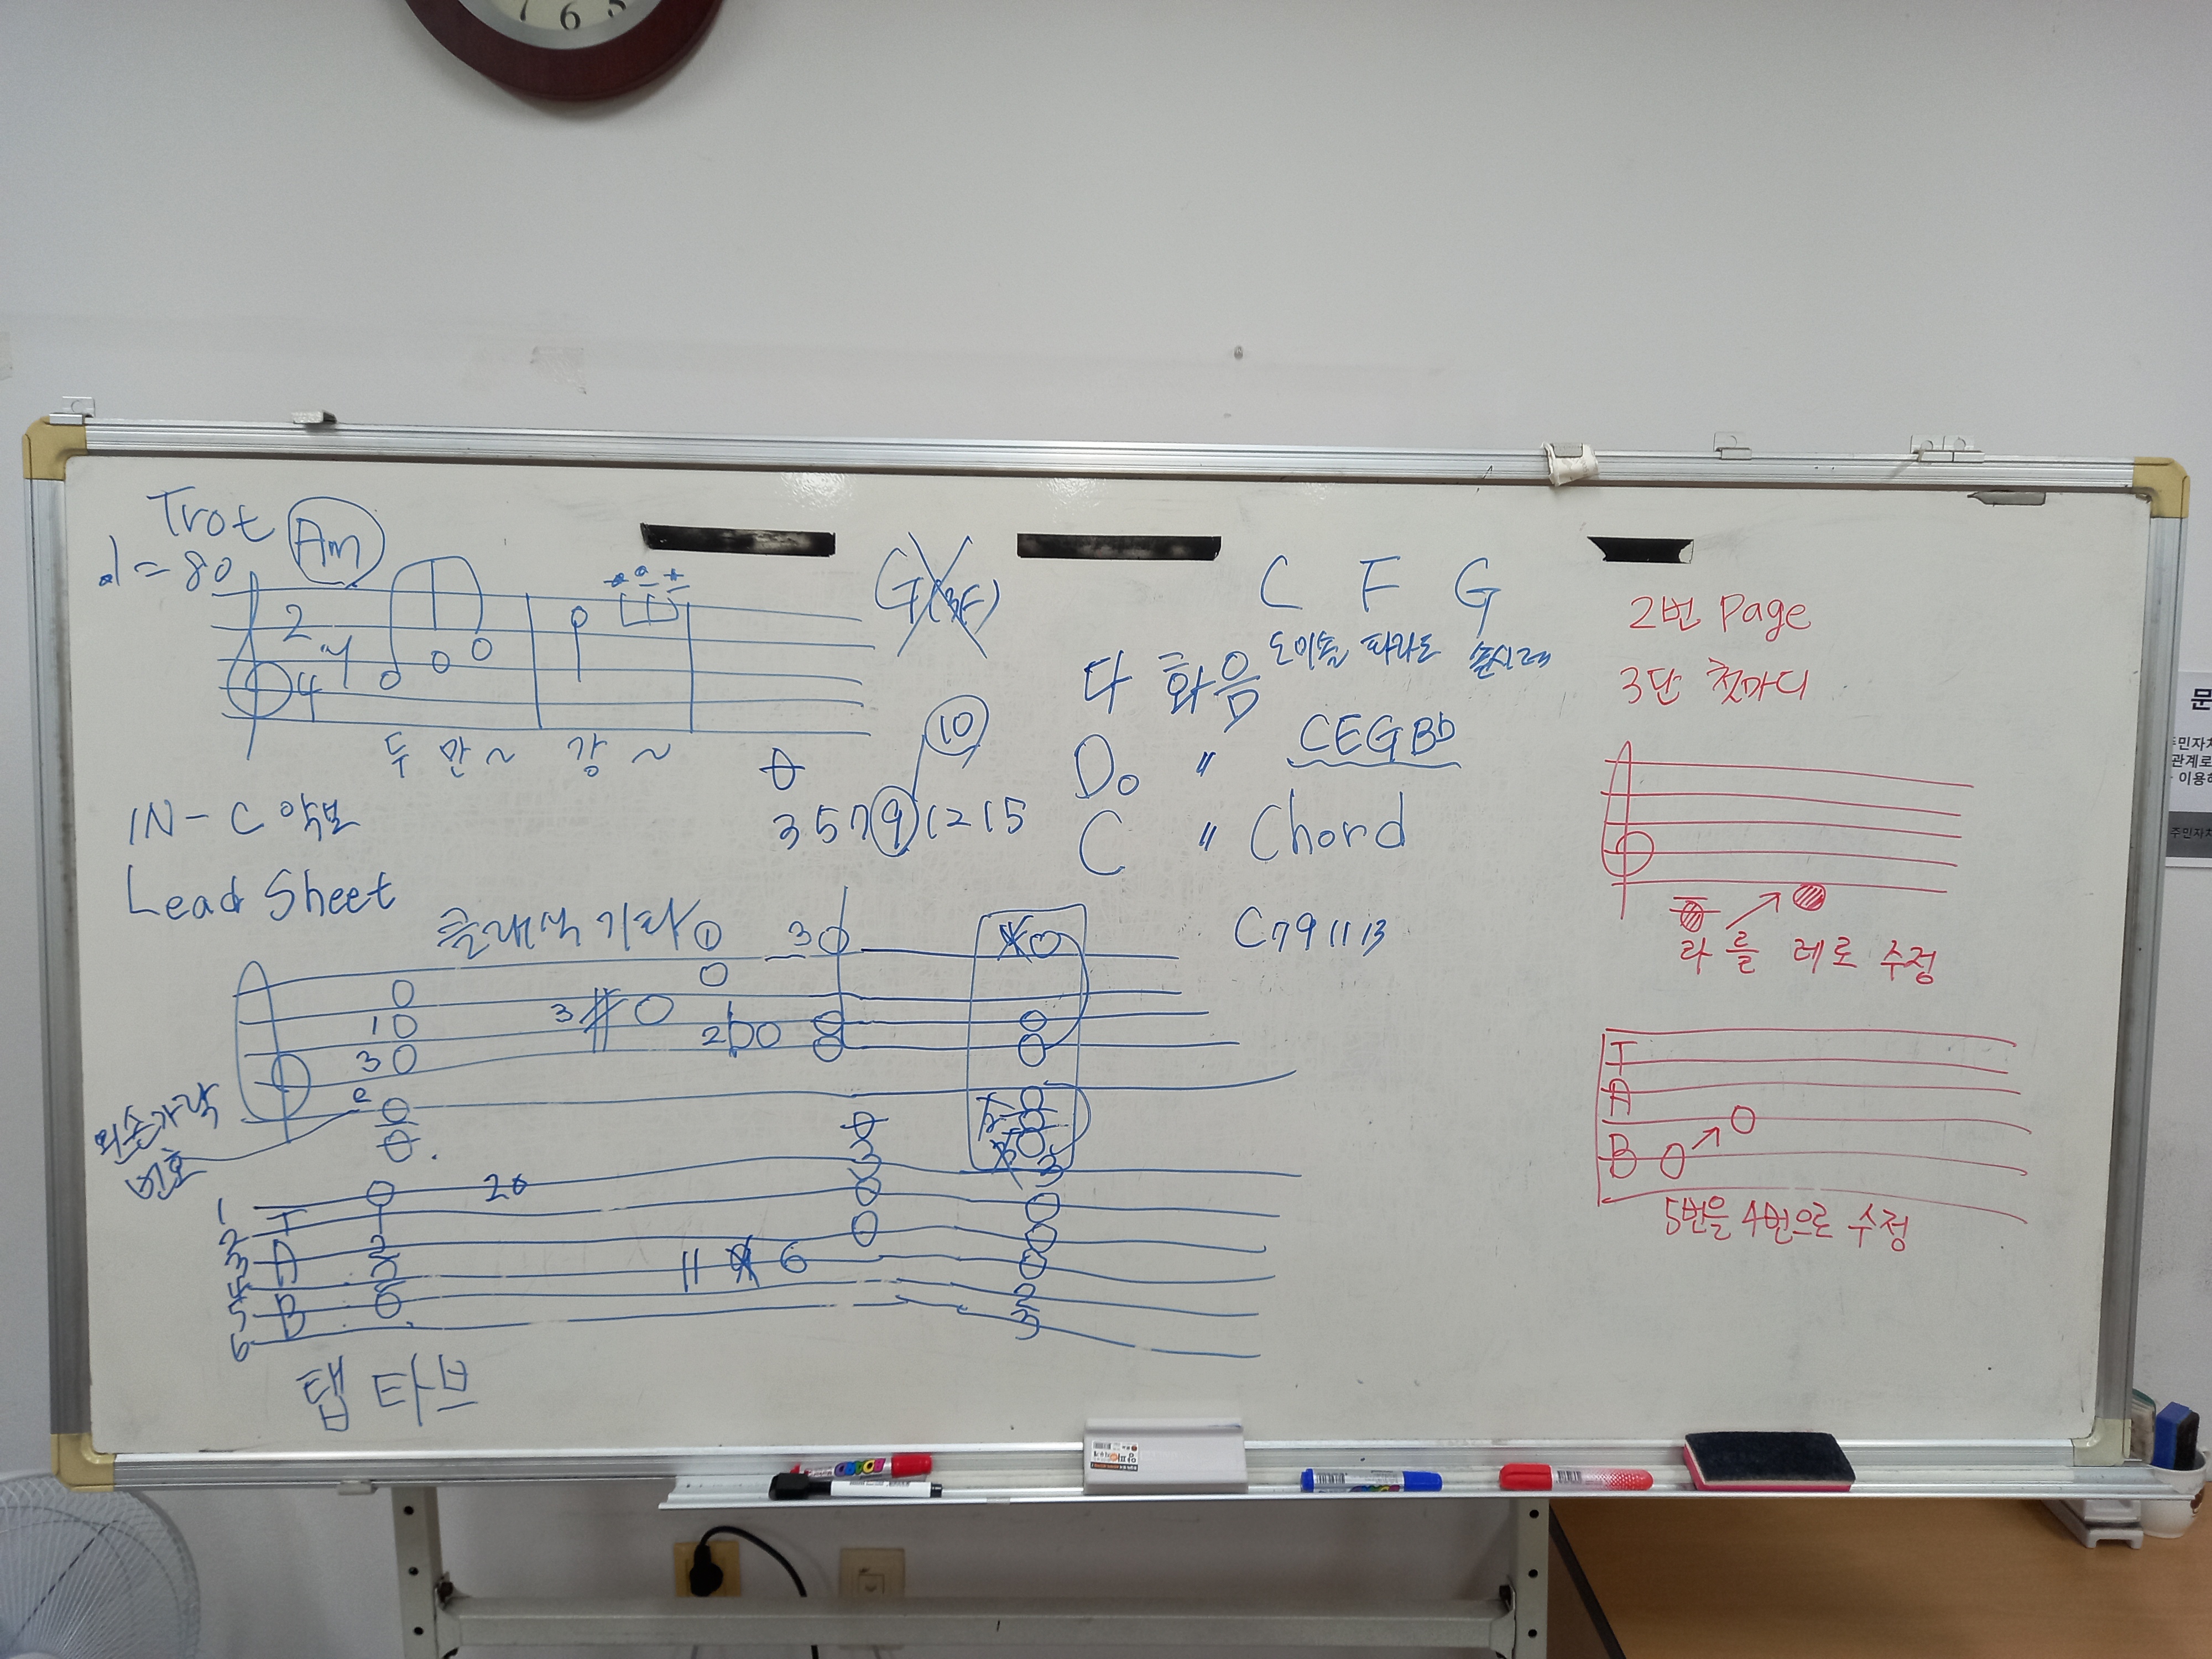 7 6 5
Trot Am
♩=80
2
4
두 만~ 강~
IN-C 악보
Lead Sheet
10
3 5 7 9 12 15
C F G
도미솔 파라도 솔시레
다 화음
Do 〃 CEGB♭
C 〃 Chord
C7 9 11 13
클래식 기타 ①
3
1
3
3 #
2 b
왼손가락
번호
1 T
2
3 A
4
5 B
6
20
11 6
탭 타브
2번 Page
3단 첫마디
라를 레로 수정
T
A
B
5번을 4번으로 수정
문
주민자치
관계로
이용하
주민자치